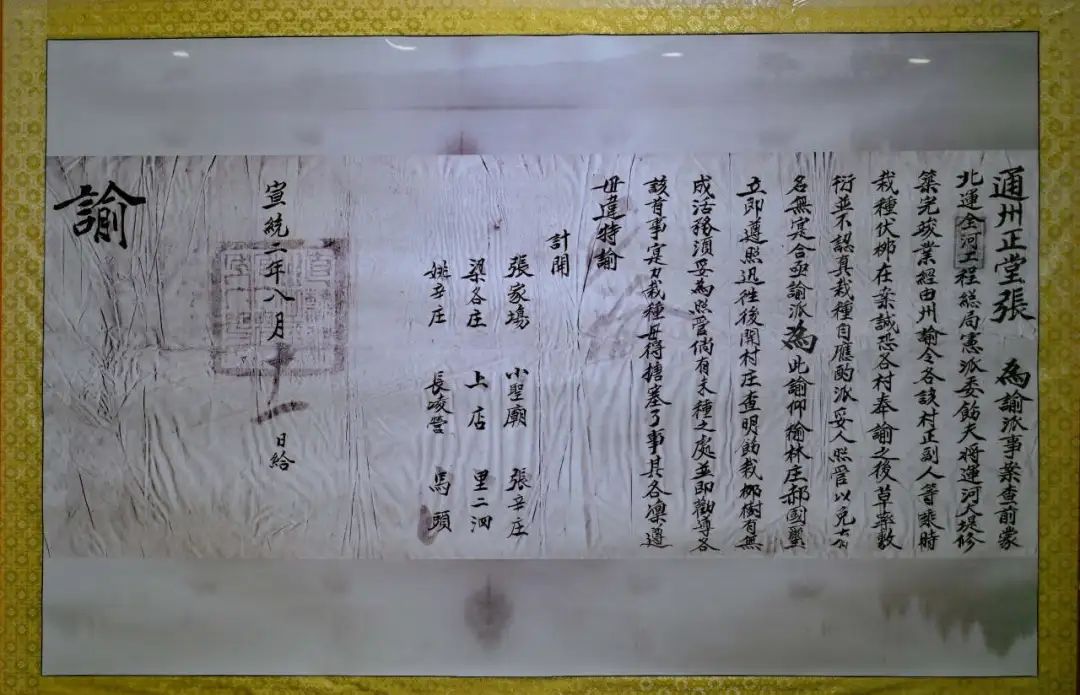 通州正堂張 為諭派事案查前蒙
北運全河工程總局憲派委飭夫將運河大堤修
築完竣業經由州諭令各該村正副人等乘時
栽種伏柳在案誠恐各村奉諭之後草率敷
衍並不認真栽種自應酌派妥人照管以免
名無寔合亟諭派為此諭仰榆林庄郝國璽
立即遵照迅往後開村庄查明飭栽柳樹有無
成活務須妥為照管倘有未種之處並即勸導各
該首事寔力栽種毋得搪塞了事其各凜遵
毋違特諭
計開
張家塲 小聖廟 張辛庄
梁各庄 上店 里二泗
姚辛庄 長凌營 馬頭
宣統二年八月十一日給
諭